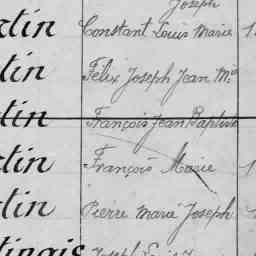 Joseph
rtin Constant Louis Marie
tin Félix Joseph Jean M.
tin François Jean Baptiste
rtin François Marie
tin Pierre Marie Joseph
tingis Joseph Louis